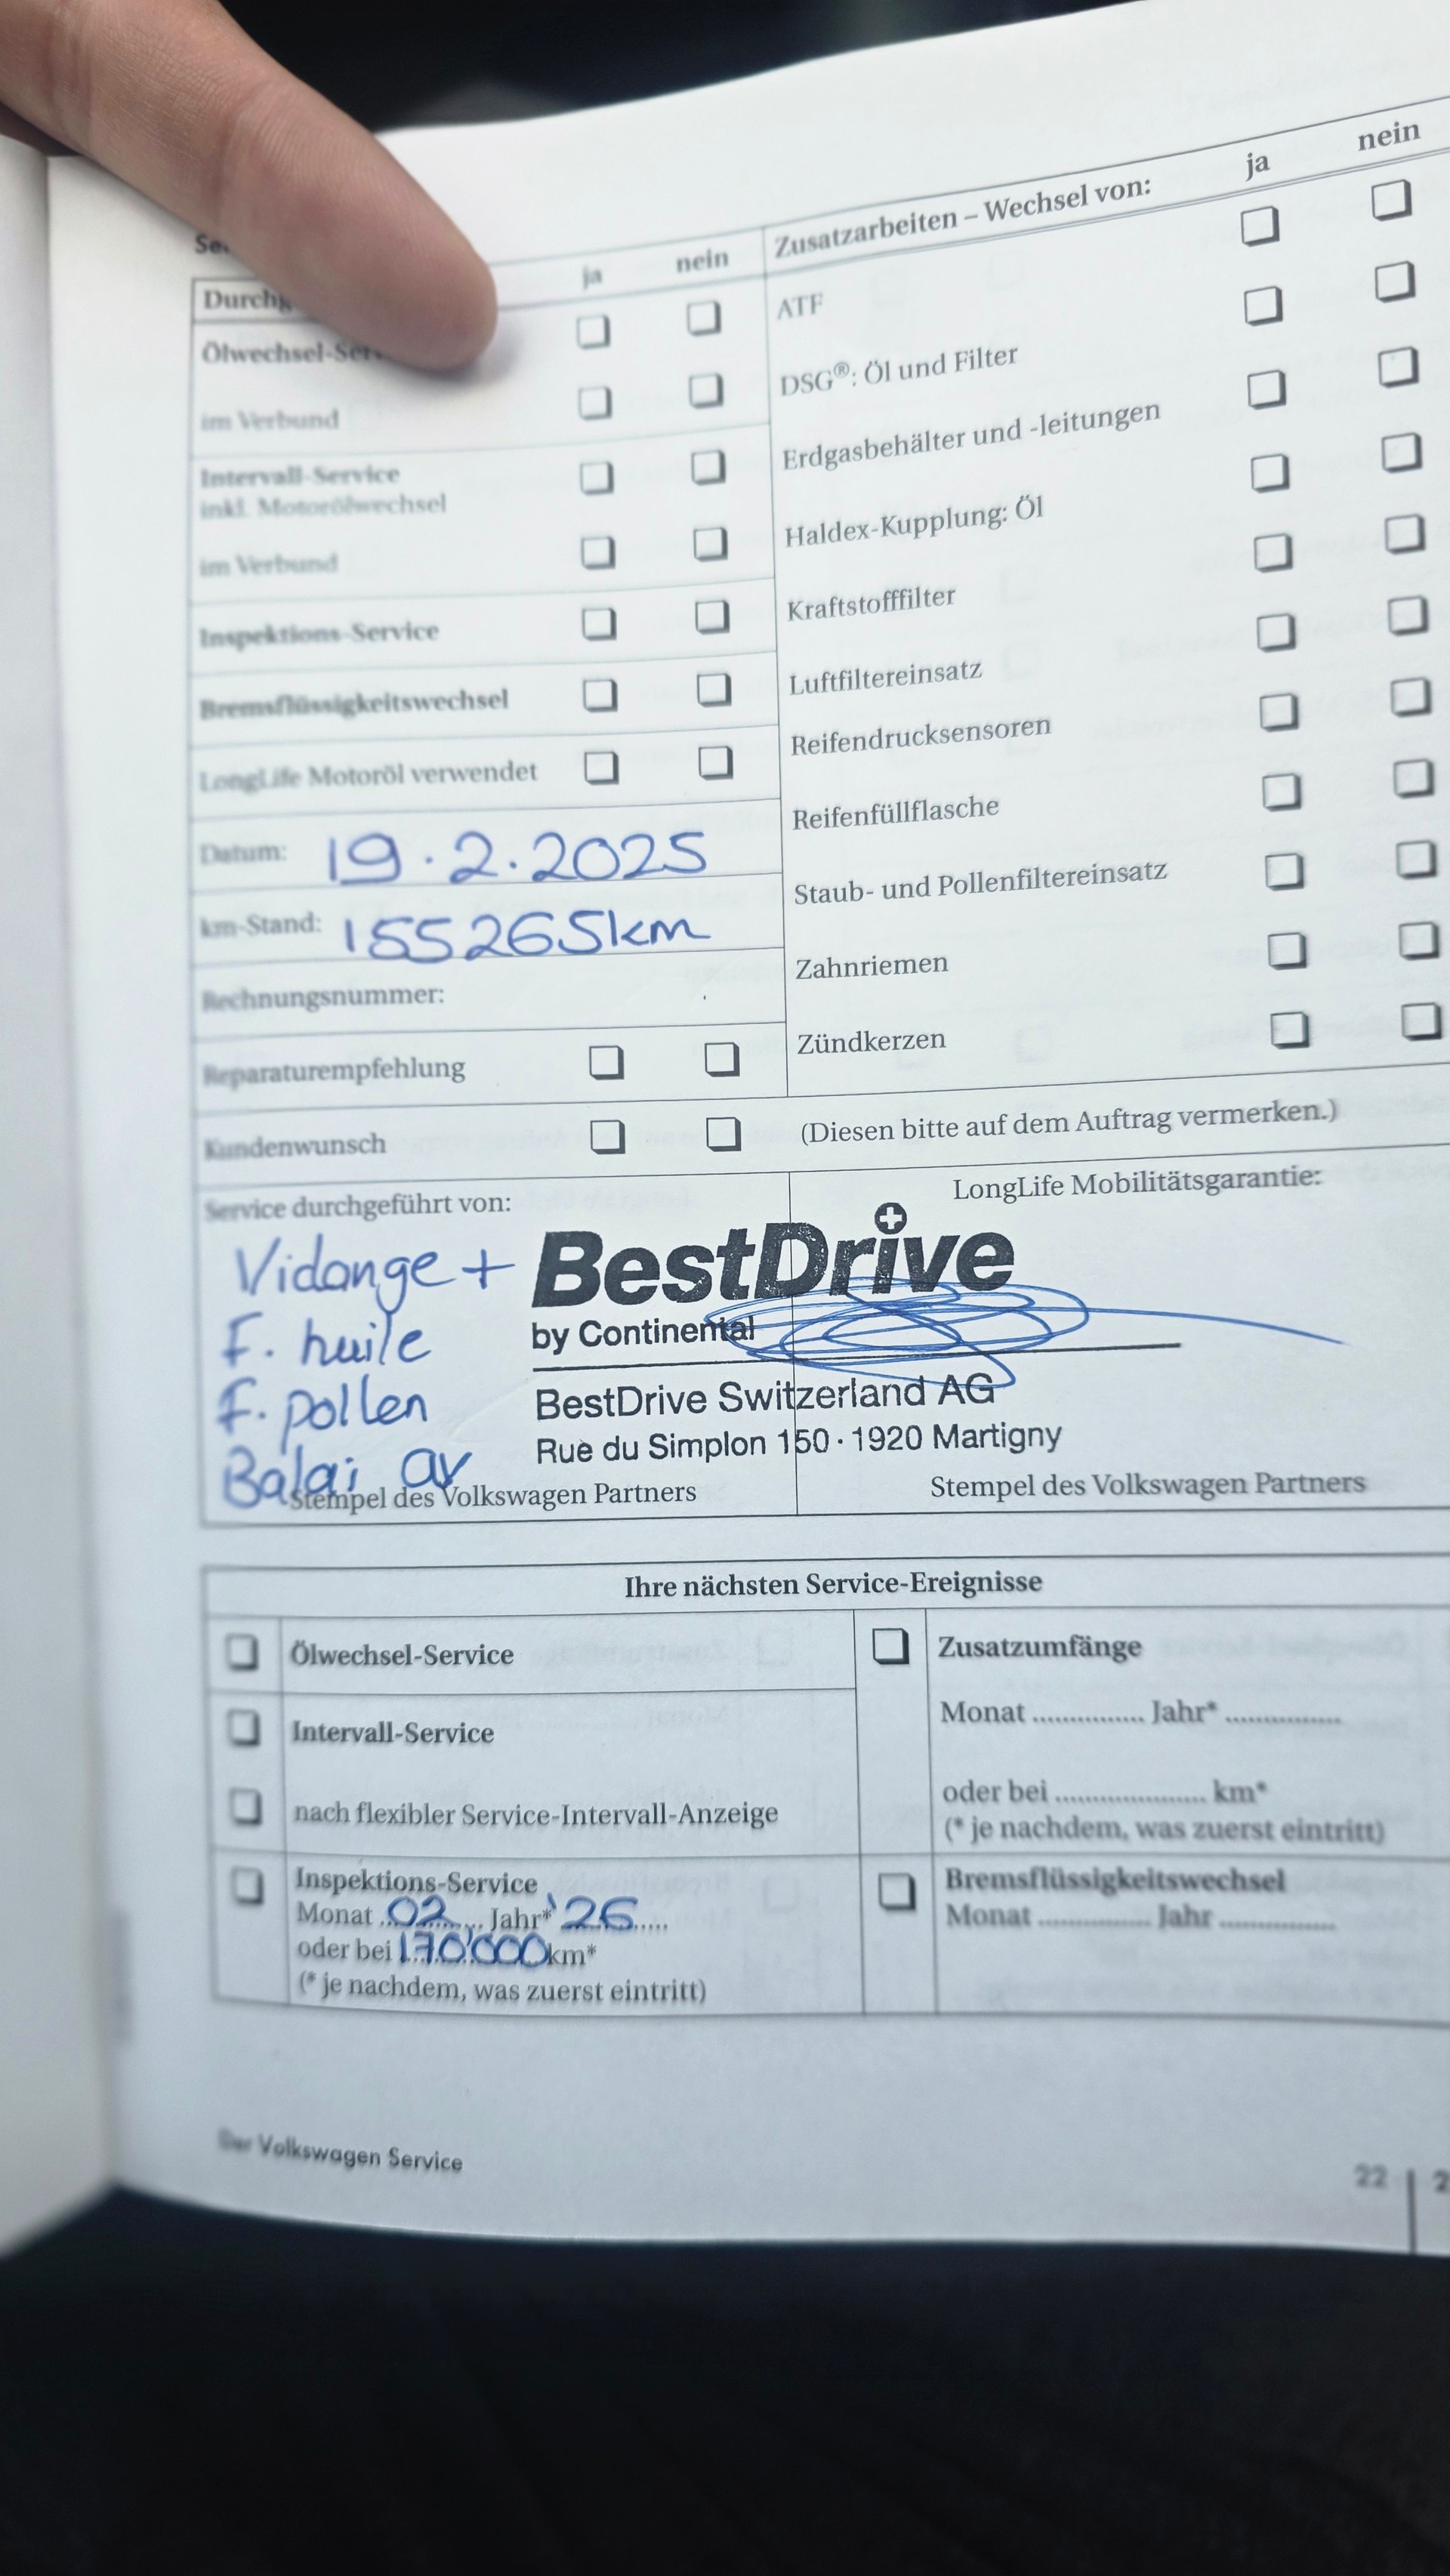 ja nein
Ölwechsel-Ser
im Verbund
Intervall-Service
inkl. Motorölwechsel
im Verbund
Inspektions-Service
Bremsflüssigkeitswechsel
LongLife Motoröl verwendet
Datum: 19.2.2025
km-Stand: 155265km
Rechnungsnummer:
Reparaturempfehlung
Kundenwunsch
Zusatzarbeiten – Wechsel von: ja nein
ATF
DSG®: Öl und Filter
Erdgasbehälter und -leitungen
Haldex-Kupplung: Öl
Kraftstofffilter
Luftfiltereinsatz
Reifendrucksensoren
Reifenfüllflasche
Staub- und Pollenfiltereinsatz
Zahnriemen
Zündkerzen
(Diesen bitte auf dem Auftrag vermerken.)
Service durchgeführt von:
LongLife Mobilitätsgarantie:
Vidange +
F. huile
F. pollen
Balai av
BestDrive
by Continental
BestDrive Switzerland AG
Rue du Simplon 150 · 1920 Martigny
Stempel des Volkswagen Partners
Stempel des Volkswagen Partners
Ihre nächsten Service-Ereignisse
Ölwechsel-Service
Intervall-Service
nach flexibler Service-Intervall-Anzeige
Inspektions-Service
Monat 02 Jahr* '26
oder bei 170'000 km*
(* je nachdem, was zuerst eintritt)
Zusatzumfänge
Monat ................ Jahr* ................
oder bei ..................... km*
(* je nachdem, was zuerst eintritt)
Bremsflüssigkeitswechsel
Monat ................ Jahr ................
Der Volkswagen Service
22